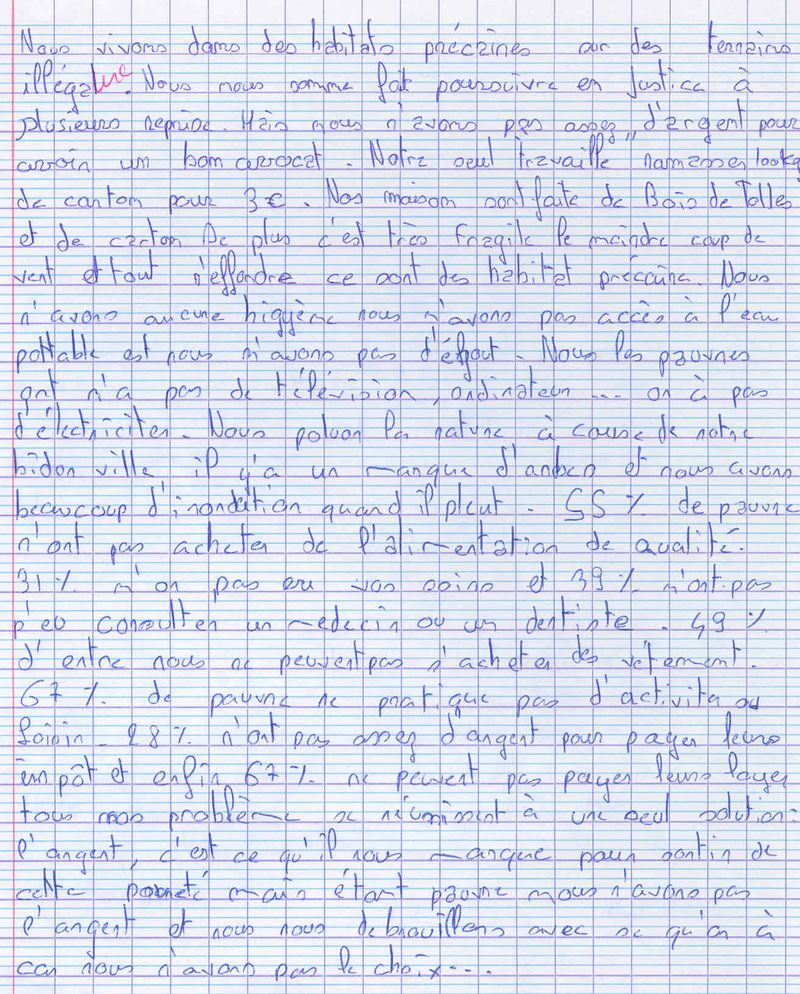 Nous vivons dans des habitats préccaines sur des terrains
illégalux. Nous nous somme fat poursuivre en Justice à
plusieurs reprise. Mais nous n'avons pas assez d'argent pour
avoir un bom avocat. Notre seul travaille ramasser 100kg
de carton pour 3€. Nos maison sont faite de Bois de Tolles
et de carton De plus c'est très fragile le moindre coup de
vent et tout s'effondre ce sont des habitat préccaire. Nous
n'avons aucune higgiène nous n'avons pas accès à l'eau
pottable est nous n'avons pas d'égout. Nous les pauvres
ont n'a pas de télévision, ordinateur... on à pas
d'électriciter. Nous poluon la nature à cause de notre
bidon ville il y'a un manque d'arbre et nous avons
beaucoup d'inondation quand il pleut. 55 % de pauvre
n'ont pas acheter de l'alimentation de qualité.
31 % n'on pas eu vos soins et 39 % n'ont pas
p'eu consulter un medecin ou un dentiste. 49 %
d'entre nous ne peuvent pas s'acheter des vêtement.
67 % de pauvre ne pratique pas d'activita ou
loisir. 28 % n'ont pas assez d'argent pour payer leurs
impôt et enfin 67 % ne peuvent pas payer leurs loyer
tous nos problème se réunissent à une seul solution:
l'argent, c'est ce qu'il nous manque pour sortir de
cette pauvreté mais étant pauvre nous n'avons pas
l'argent et nous nous debrouillons avec se qu'on à
car nous n'avons pas le choix....